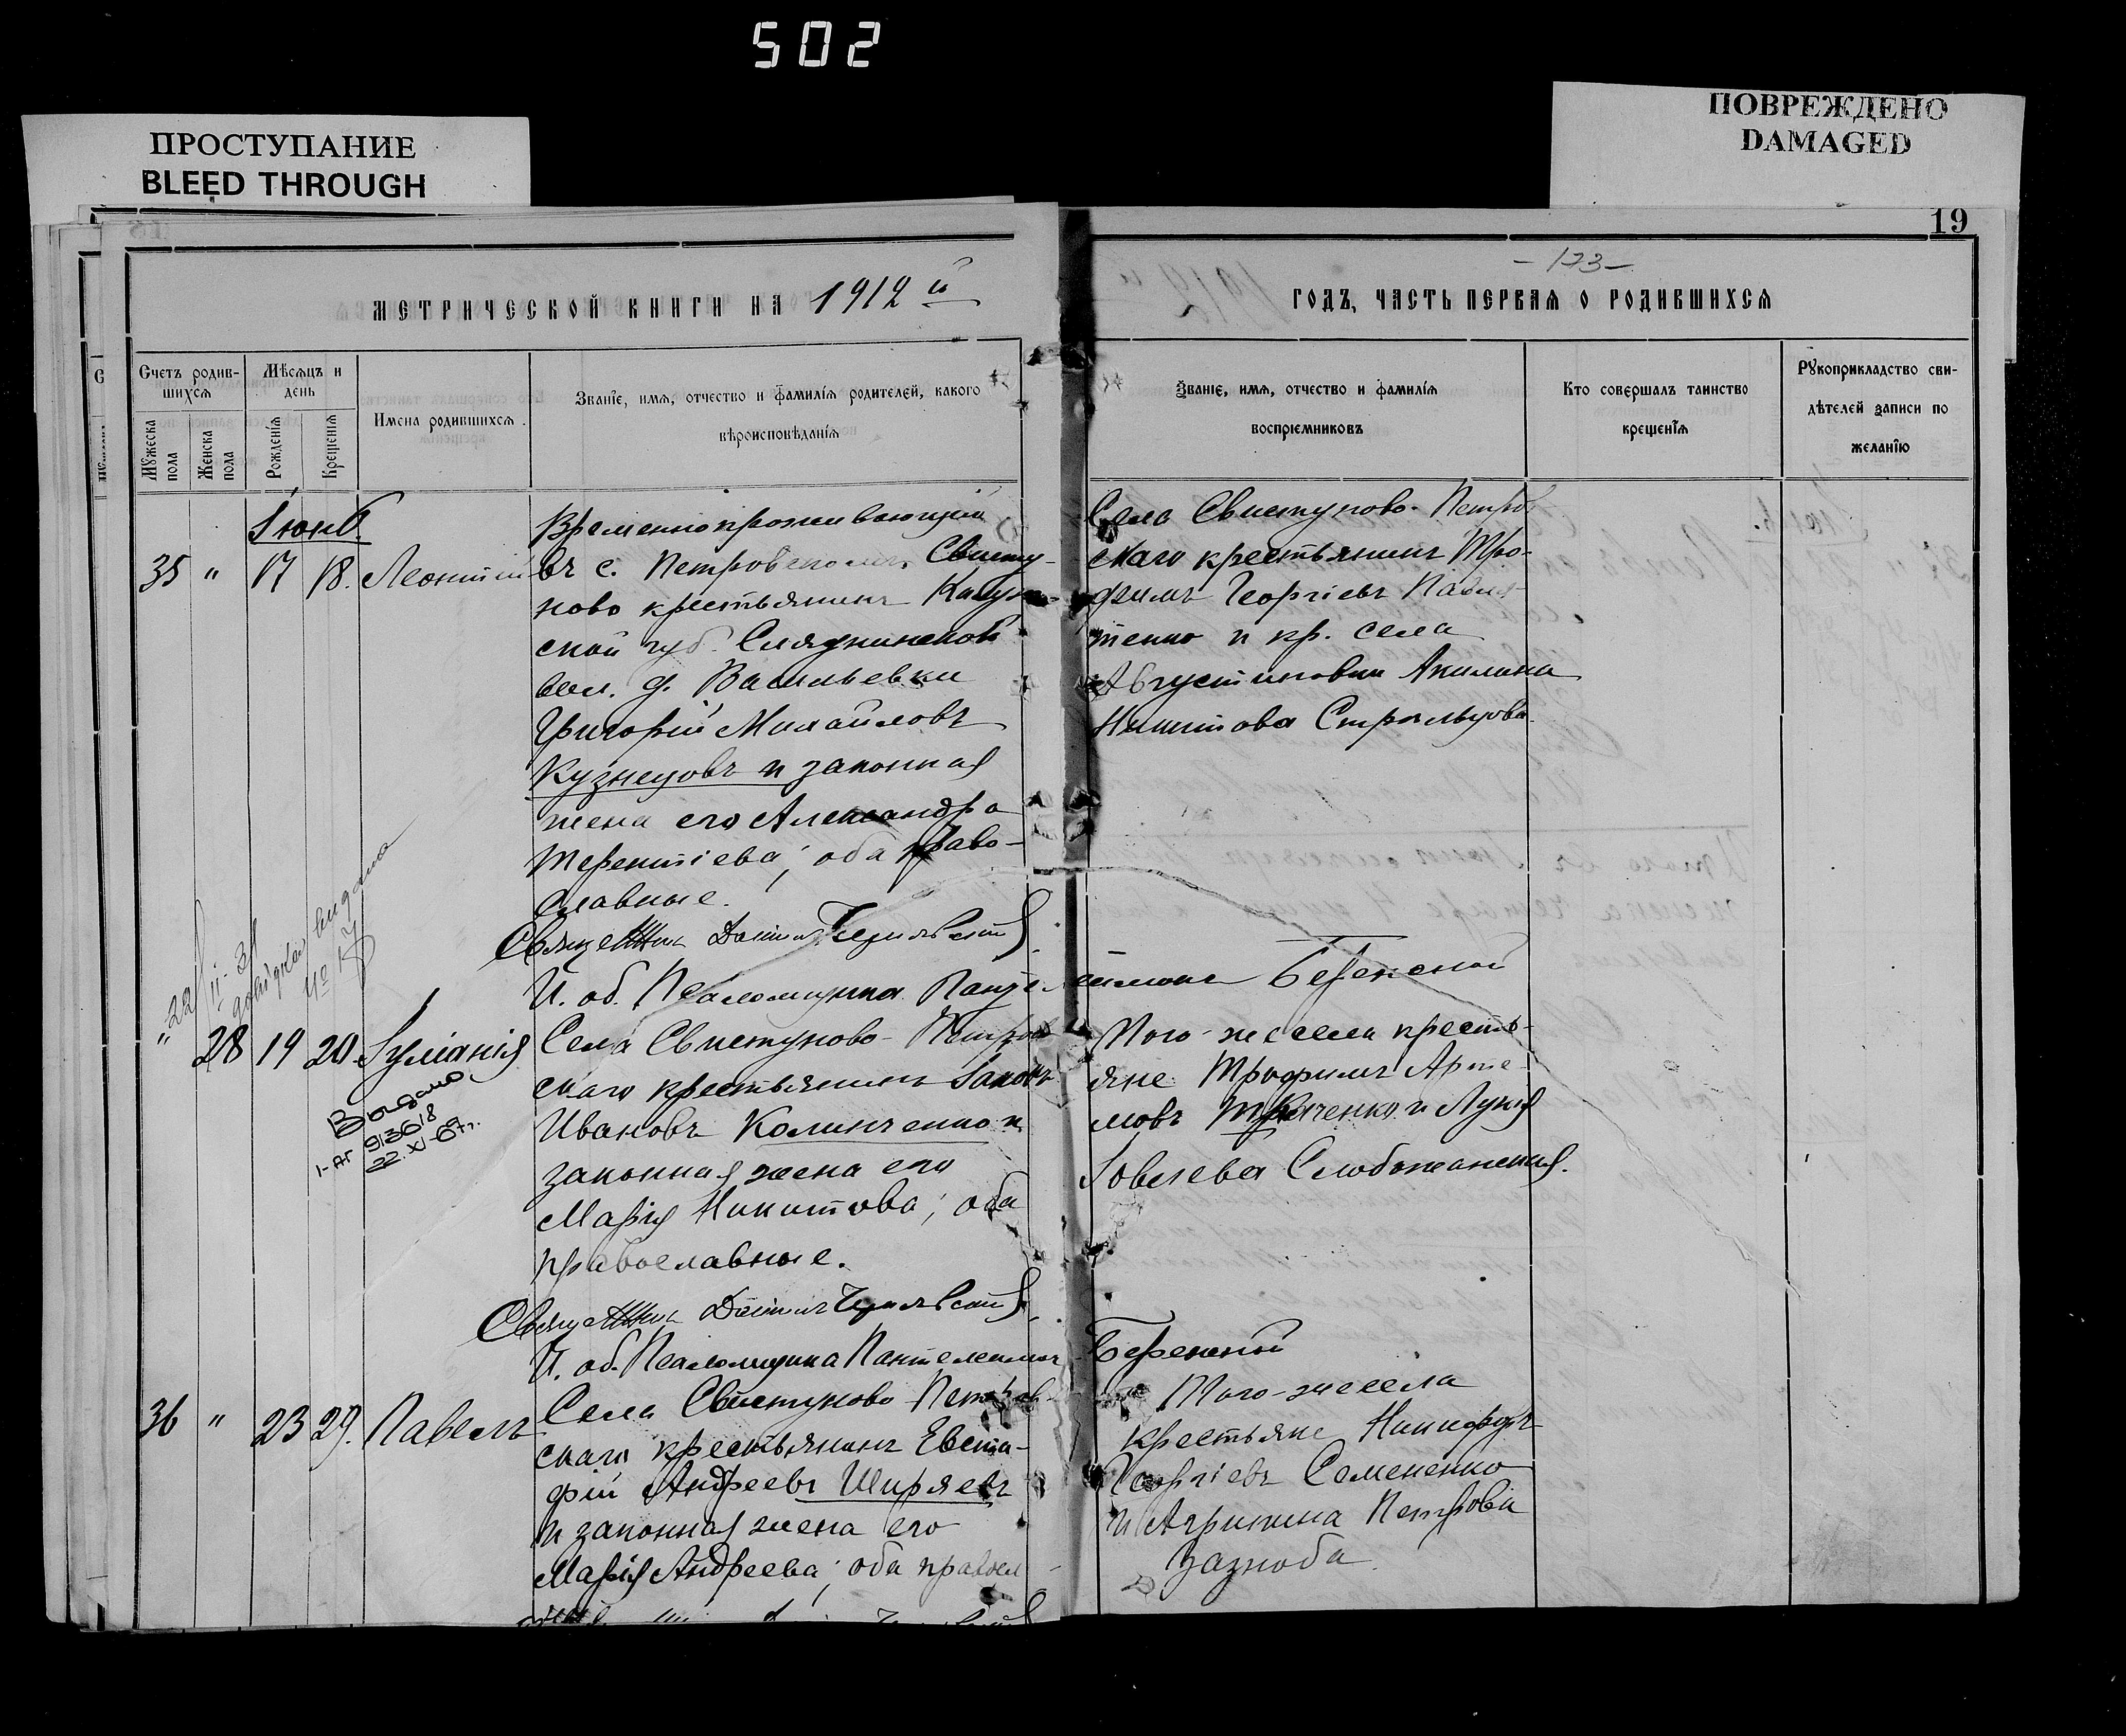 502
ПРОСТУПАНИЕ
BLEED THROUGH
ПОВРЕЖДЕНО
DAMAGED
19
МЕТРИЧЕСКОЙ КНИГИ НА 1912й
- 123 -
ГОДЪ, ЧАСТЬ ПЕРВАЯ О РОДИВШИХСЯ
Счетъ родив-
шихся
Мужеска пола
Женска пола
Мѣсяцъ и
день
Рожденія
Крещенія
Имена родившихся.
Званіе, имя, отчество и фамилія родителей, какого
вѣроисповѣданія
Званіе, имя, отчество и фамилія
воспріемниковъ
Кто совершалъ таинство
крещенія
Рукоприкладство сви-
дѣтелей записи по
желанію
Іюнь.
35 " 17 18. Леонтій
Временнопроживающій
въ с. Петровскомъ Свисту-
ново крестьянинъ Калуж-
ской губ.
вол. д. Васильевки
Григорій Михайловъ
Кузнецовъ и законная
жена его Александра
Терентіева; оба право-
славные.
Села Свистуново-Петров
скаго крестьянинъ Тро-
фимъ Георгіевъ Павлю-
тенко и кр. села
Августиновки Акилина
Никитова Стрѣльцова.
И. об. Псаломщика Пантелеимонъ Береженой
" 28 19 20. Іуліанія
Выдано
I-АГ 913618
22.XI-67г.
Села Свистуново-Петров
скаго крестьянинъ Іаковъ
Ивановъ Колинченко и
законная жена его
Марія Никитова; оба
православные.
Того-же села кресть-
яне Трофимъ Арте-
мовъ Ткаченко и Лукія
Іовлева Слобожанская.
И. об. Псаломщика Пантелеимонъ Береженой
36 " 23 29. Павелъ
Села Свистуново-Петров-
скаго крестьянинъ Евста-
фій Андреевъ Ширяевъ
и законная жена его
Марія Андреева; оба правосл
Того-же села
крестьяне Никифоръ
Георгіевъ Семененко
и Агрипина Петрова
Зазноба.